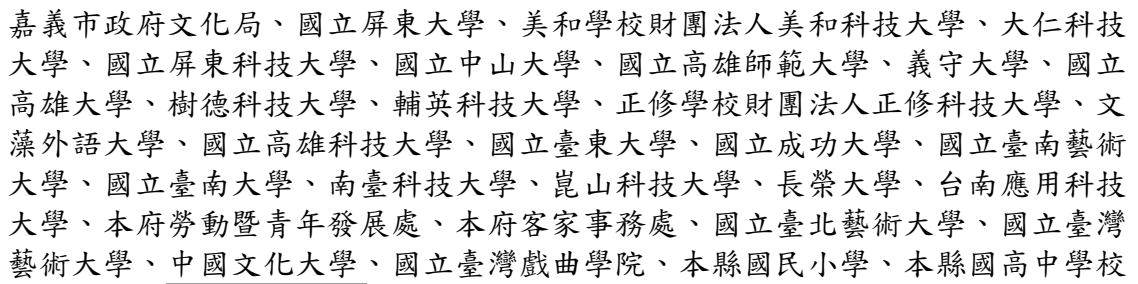 嘉義市政府文化局、國立屏東大學、美和學校財團法人美和科技大學、大仁科技
大學、國立屏東科技大學、國立中山大學、國立高雄師範大學、義守大學、國立
高雄大學、樹德科技大學、輔英科技大學、正修學校財團法人正修科技大學、文
藻外語大學、國立高雄科技大學、國立臺東大學、國立成功大學、國立臺南藝術
大學、國立臺南大學、南臺科技大學、崑山科技大學、長榮大學、台南應用科技
大學、本府勞動暨青年發展處、本府客家事務處、國立臺北藝術大學、國立臺灣
藝術大學、中國文化大學、國立臺灣戲曲學院、本縣國民小學、本縣國高中學校